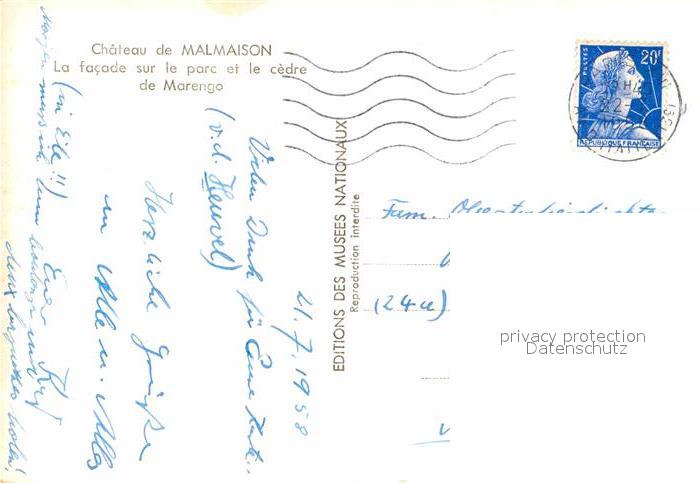 Château de MALMAISON
La façade sur le parc et le cèdre
de Marengo
POSTES
20F
REPUBLIQUE FRANÇAISE
EDITIONS DES MUSÉES NATIONAUX
Reproduction interdite
21.7.1958
Vielen Dank für Eure Karte..
(v.d. Heuvel)
Herzliche Grüße
an Alle u. Alles
Euer
(in Eile!!)
Morgen muss ich zum
deux baguettes holen!
Fam.
(24a)
privacy protection
Datenschutz